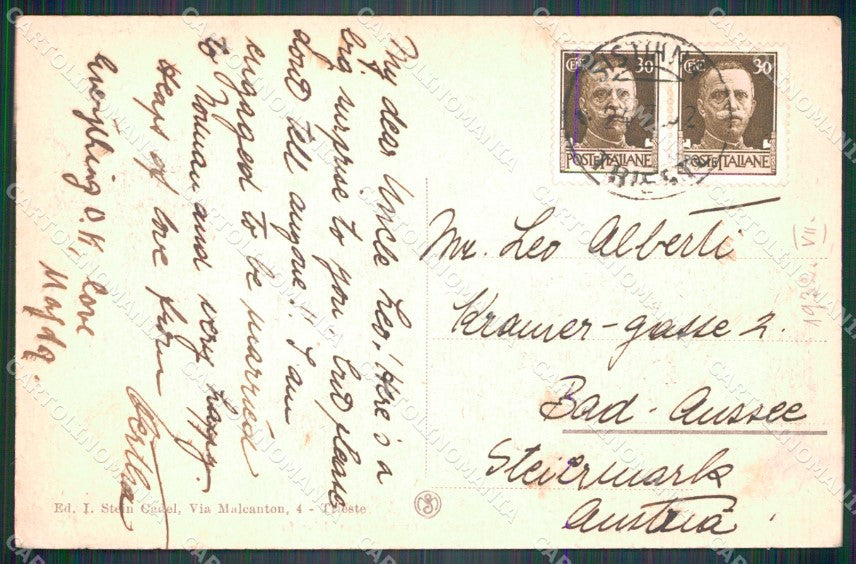 My dear Uncle Leo! Here is a
big surprise to you but please
dont tell anyone!! I am
engaged to be married
to Norman and very happy.
Heaps of love from
Bertha
Everything O.K. love
Magda.
Mr. Leo Alberti
Kramer-gasse 2.
Bad-Aussee
Steiermark
Austria
1932. VII.
30 30
POSTE ITALIANE POSTE ITALIANE
TRIESTE
Ed. I. Stein Cadel, Via Malcanton, 4 - Trieste
CARTOLINOMANIA